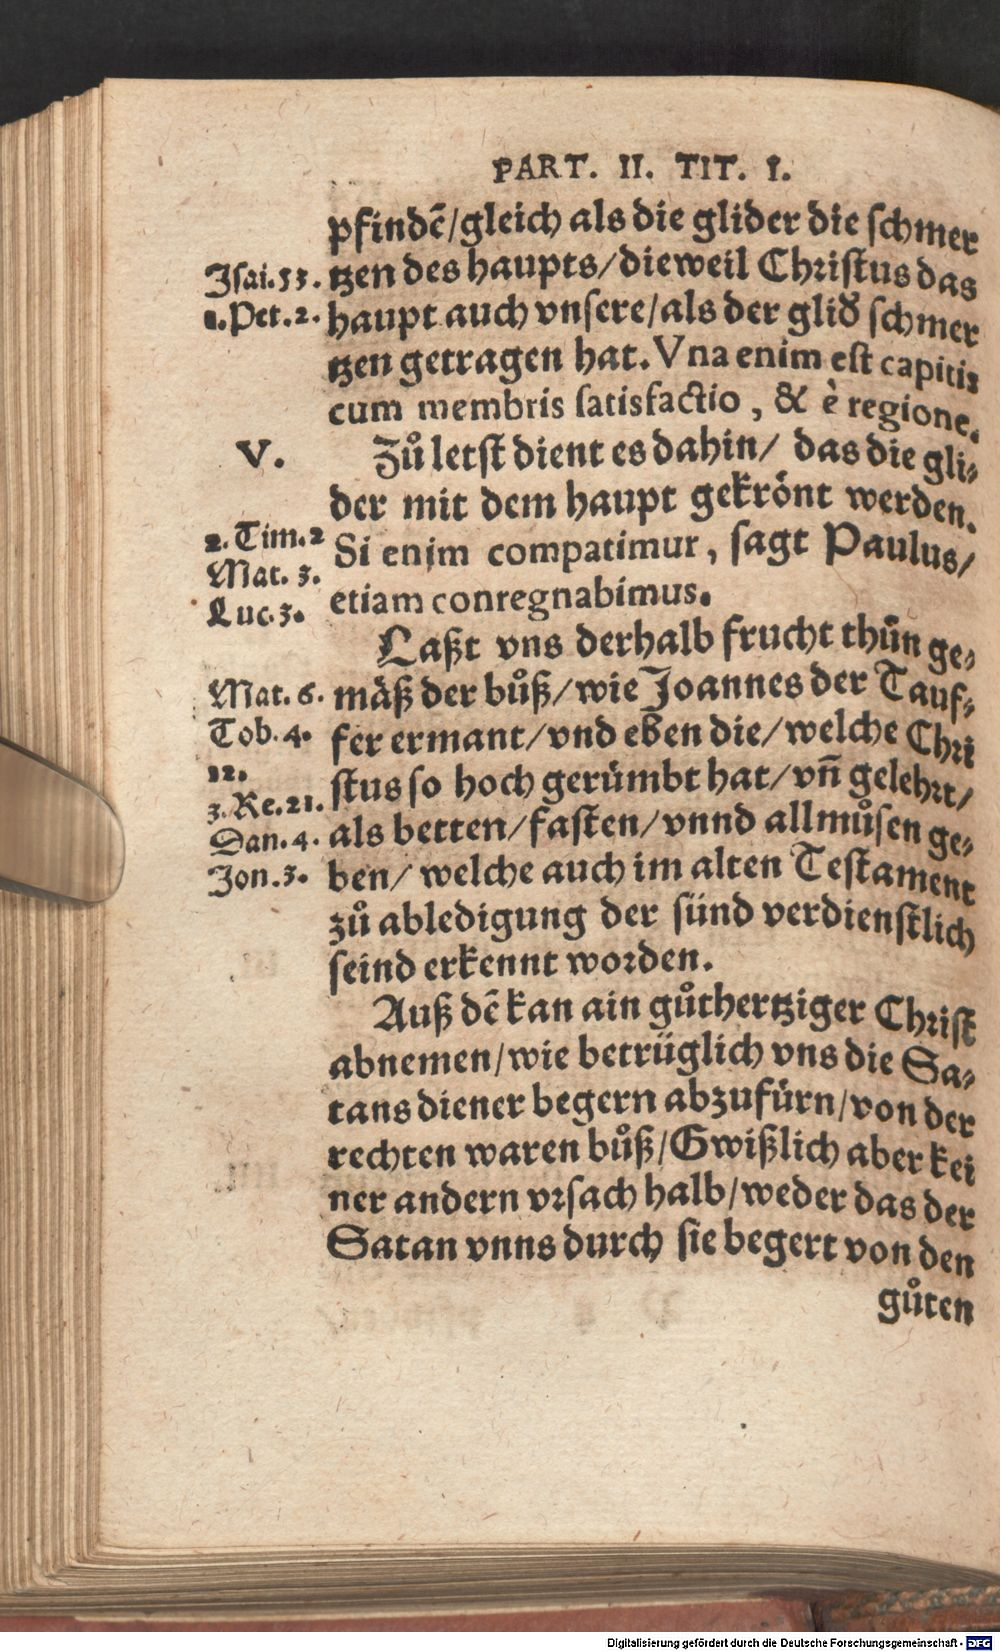 PART. II. TIT. I.
pfindẽ/gleich als die glider die schmer
Isai.53. tzen des haupts/dieweil Christus das
1.Pet.2. haupt auch vnsere/als der glid schmer
tzen getragen hat. Vna enim est capitis
cum membris satisfactio, & è regione.
V. Zů letst dient es dahin/ das die gli⸗
der mit dem haupt gekrönt werden.
2.Tim.2 Si enim compatimur, sagt Paulus/
Mat. 3.
Luc.3. etiam conregnabimus.
Laßt vns derhalb frucht thůn ge⸗
Mat. 6. mäß der bůß/wie Joannes der Tauf⸗
Tob.4. fer ermant/vnd eben die/welche Chri
12. stus so hoch gerümbt hat/vñ gelehrt/
3.Re.21.
Dan.4. als betten/fasten/vnnd allmůsen ge⸗
Jon.3. ben/ welche auch im alten Testament
zů abledigung der sünd verdienstlich
seind erkennt worden.
Auß dẽ kan ain gůthertziger Christ
abnemen/wie betrüglich vns die Sa⸗
tans diener begern abzufürn/von der
rechten waren bůß/Gwißlich aber kei
ner andern vrsach halb/weder das der
Satan vnns durch sie begert von den
gůten
Digitalisierung gefördert durch die Deutsche Forschungsgemeinschaft - DFG